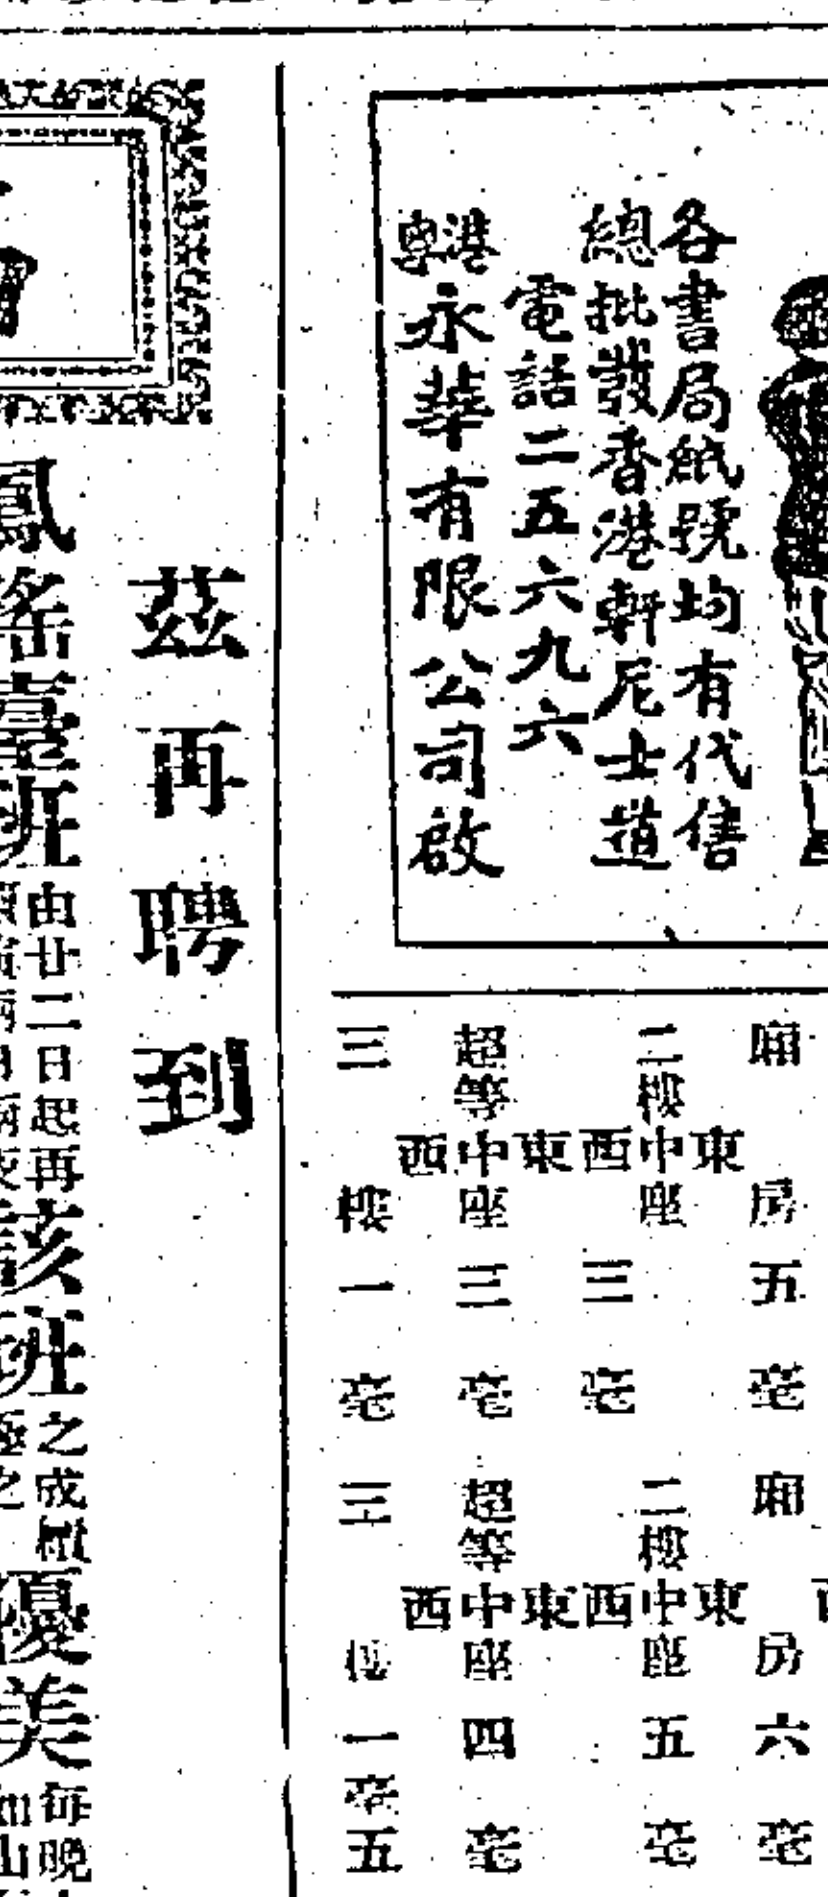 各書局紙號均有代售
總批發香港軒尼士道
電話二五六九六
永華有限公司啟
廂房五毫
二樓東中西座三毫
超等東中西座三毫
三樓一毫
廂房六毫
二樓東中西座五毫
超等東中西座四毫
三樓一毫五
茲再聘到
鳳瑤臺班由廿二日起再
該班之成績優美每晚